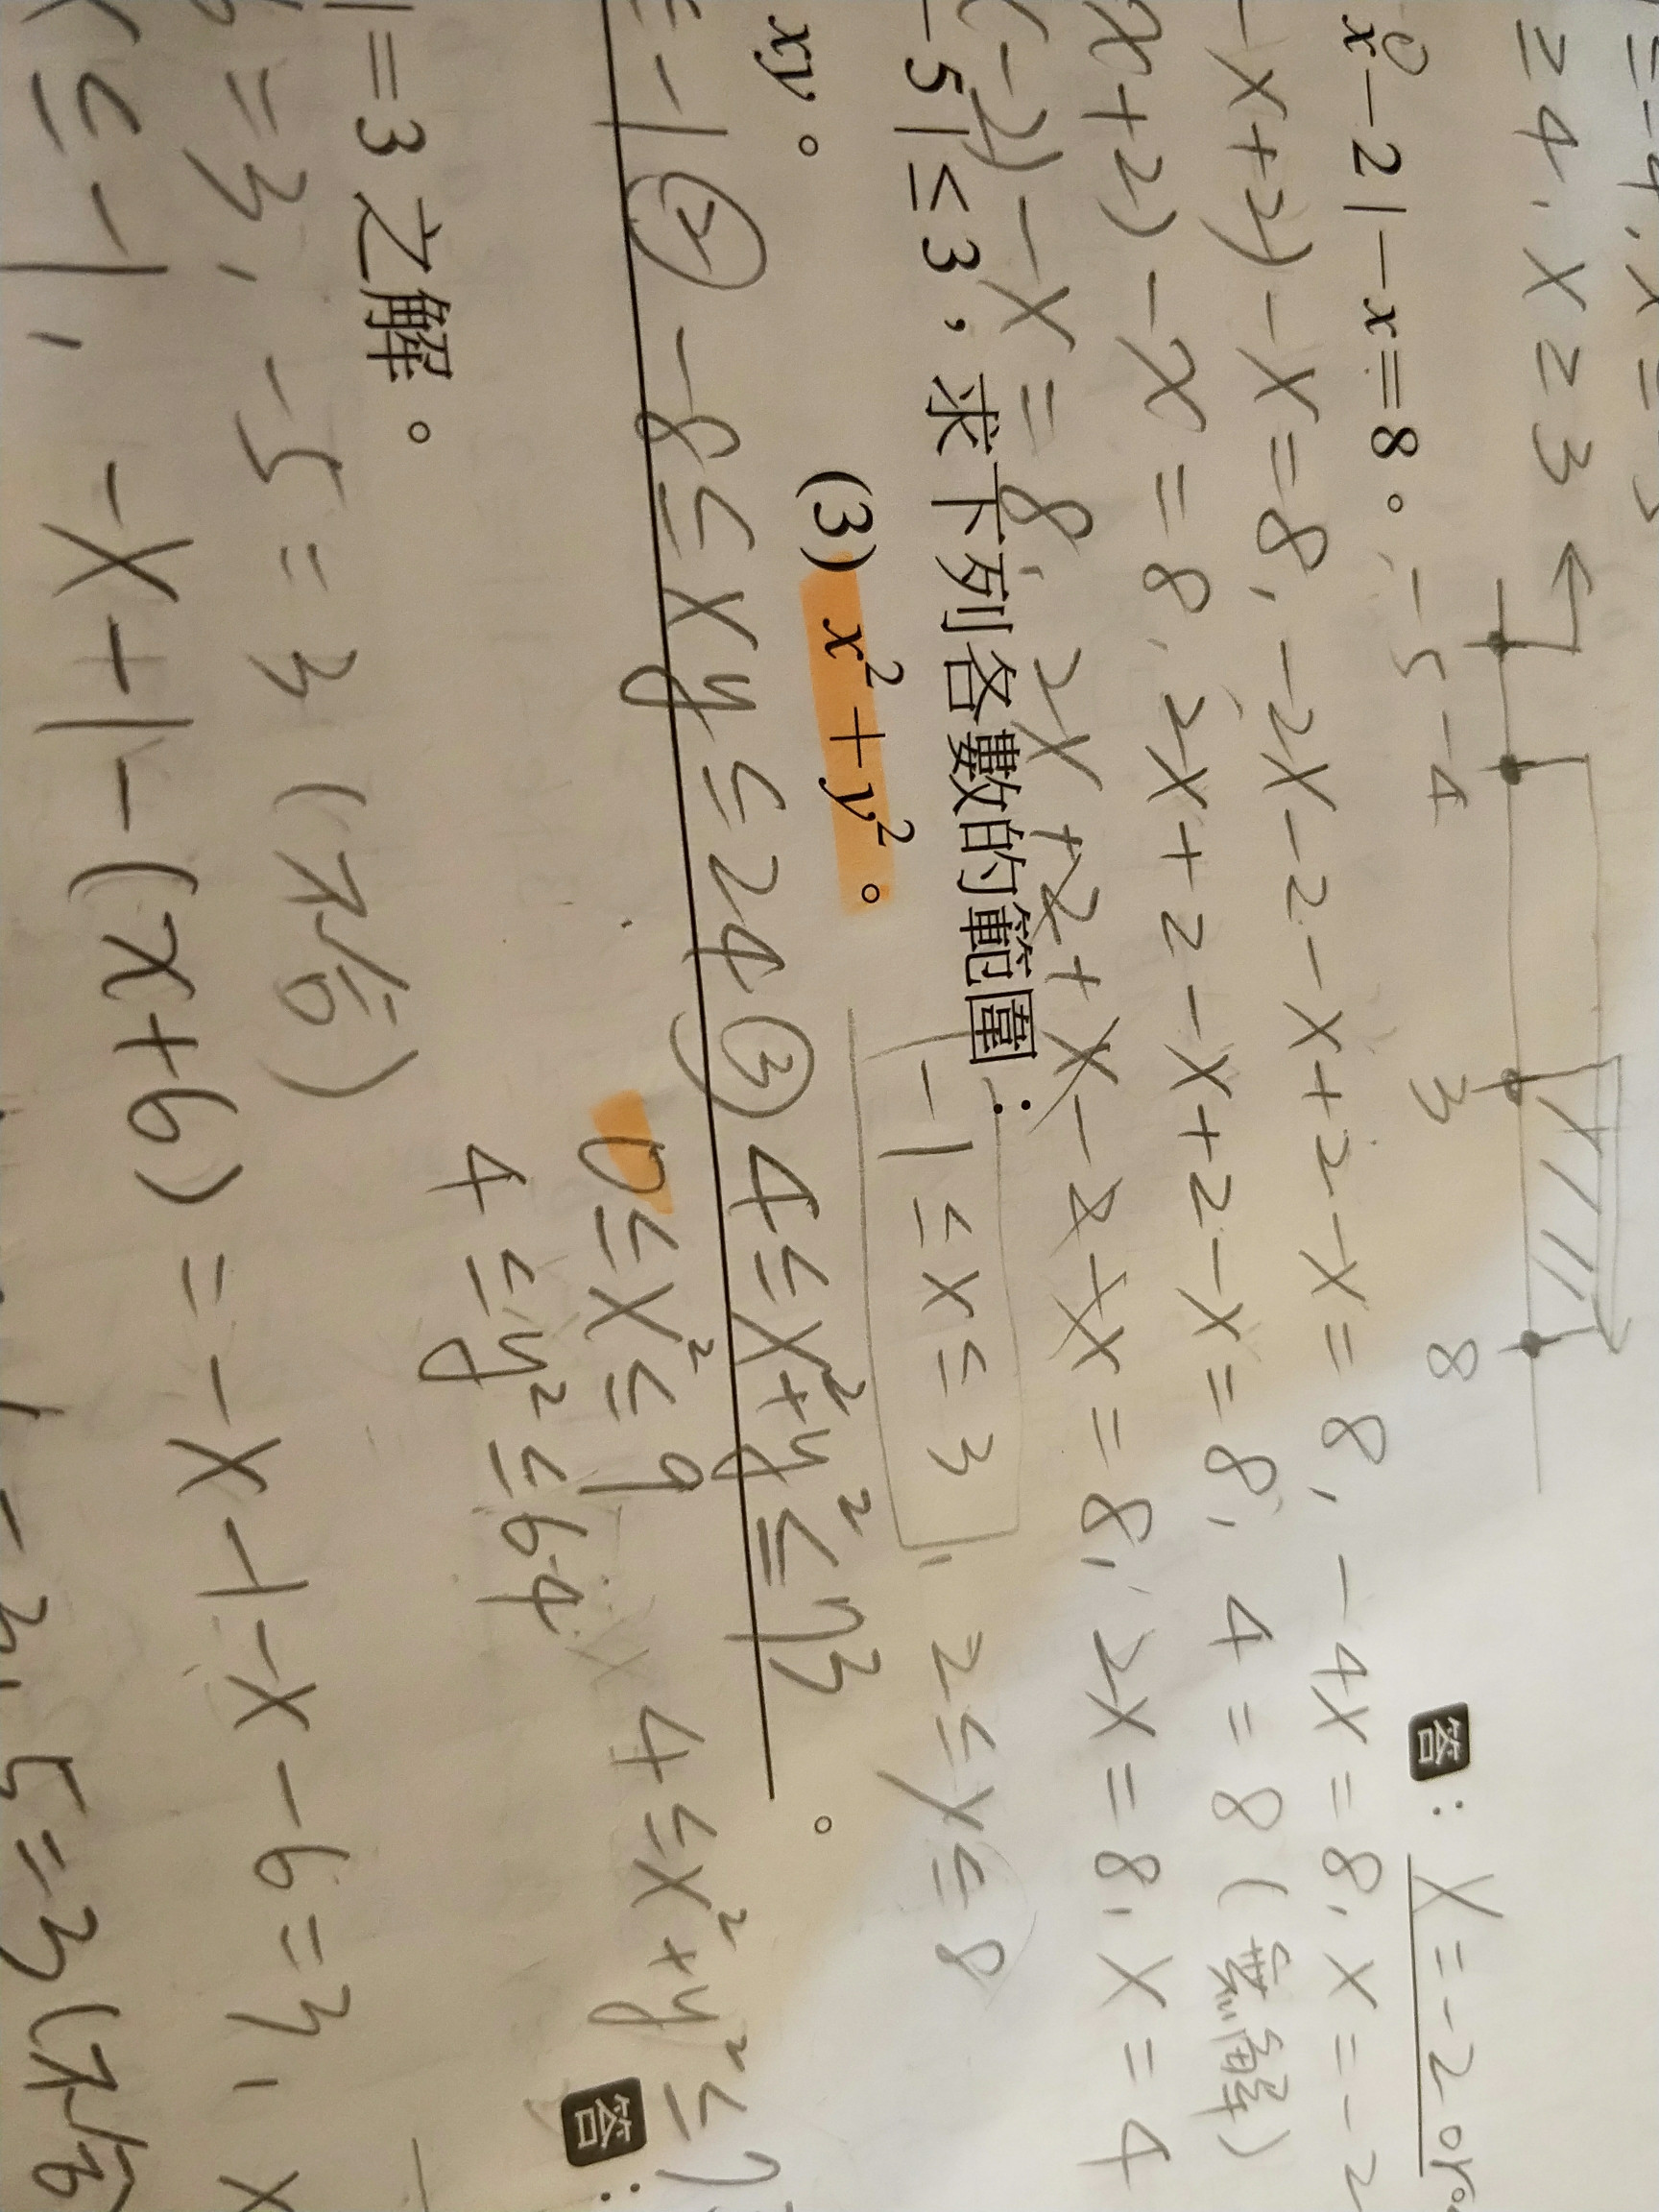 ≥4, x≥3
-5 -4 3 8
x-2|-x=8。
答：x=-2 or
-x+2)-x=8, -2x-2-x+2-x=8, -4x=8, x=-2
x+2)-x=8, 2x+2-x+2-x=8, 4=8 (無解)
-x=8, 2x+2+x-2-x=8, 2x=8, x=4
-5|≤3，求下列各數的範圍：
-1≤x≤3, 2≤y≤8
xy。 (3) x²+y²。
≤-1 ② -8≤xy≤24 ③ 4≤x²+y²≤73。
0≤x²≤9
4≤x²+y²≤7
4≤y²≤64
答：
|=3之解。
=3, -5=3 (不合)
≤-1, -x+1-(x+6)=-x+1-x-6=3, x
5=3 (不合